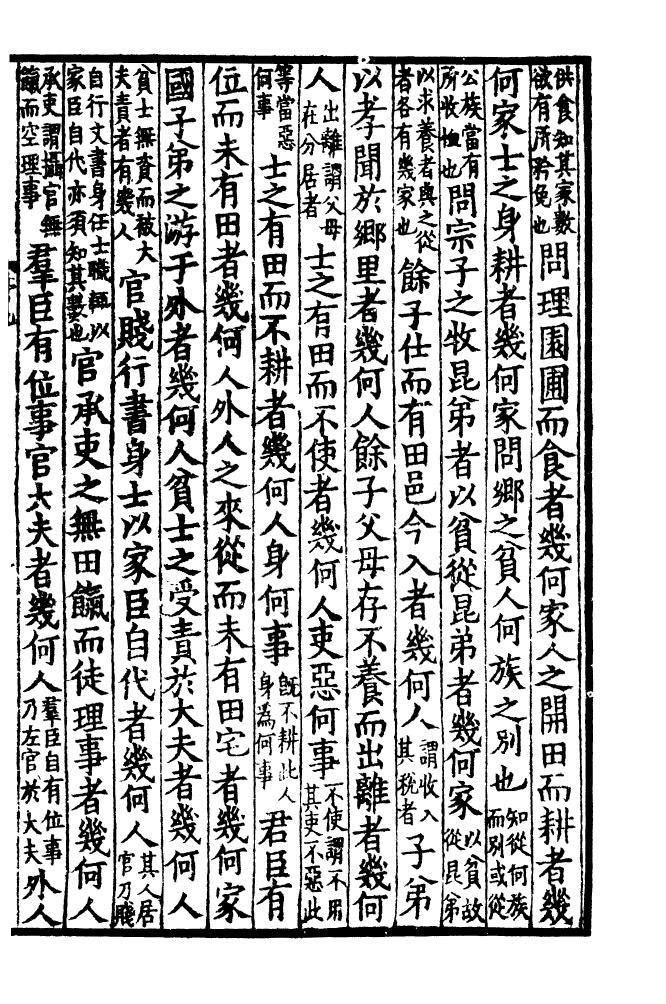 供食知其家數欲有所矜免也問理園圃而食者幾何家人之開田而耕者幾
何家士之身耕者幾何家問鄉之貧人何族之別也知從何族而別或從
公族當有所收恤也問宗子之牧昆弟者以貧從昆弟者幾何家以貧故從昆弟
以求養者與之從者各有幾家也餘子仕而有田邑今入者幾何人謂收入其稅者子弟
以孝聞於鄉里者幾何人餘子父母存不養而出離者幾何
人出離謂父母在分居者士之有田而不使者幾何人吏惡何事不使謂不用其吏不惡此
等當惡何事士之有田而不耕者幾何人身何事旣不耕此人身為何事君臣有
位而未有田者幾何人外人之來從而未有田宅者幾何家
國子弟之游于外者幾何人貧士之受責於大夫者幾何人
貧士無資而被大夫責者有幾人官賤行書身士以家臣自代者幾何人其人居官乃賤
自行文書身任士職輒以家臣自代亦須知其數也官承吏之無田餼而徒理事者幾何人
承吏謂攝官無餼而空理事羣臣有位事官大夫者幾何人羣臣自有位事乃左官於大夫外人